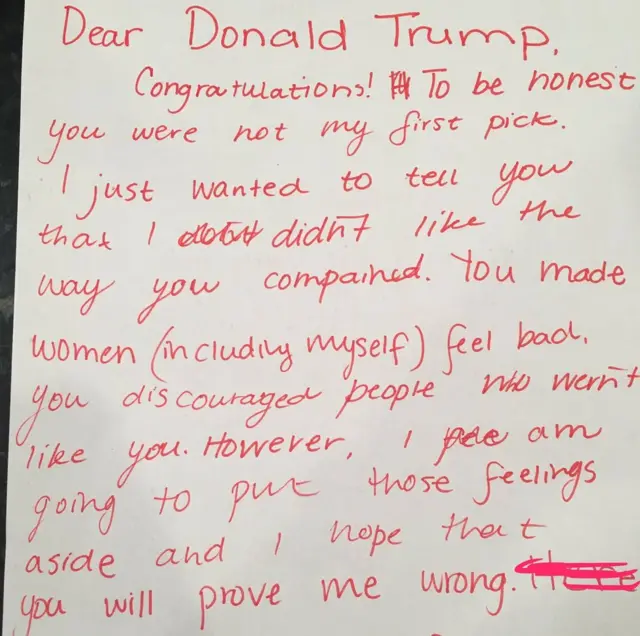 Dear Donald Trump,
Congratulations! To be honest
you were not my first pick.
I just wanted to tell you
that I didn't like the
way you compained. You made
women (including myself) feel bad.
You discouraged people who wern't
like you. However, I am
going to put those feelings
aside and I hope that
you will prove me wrong.